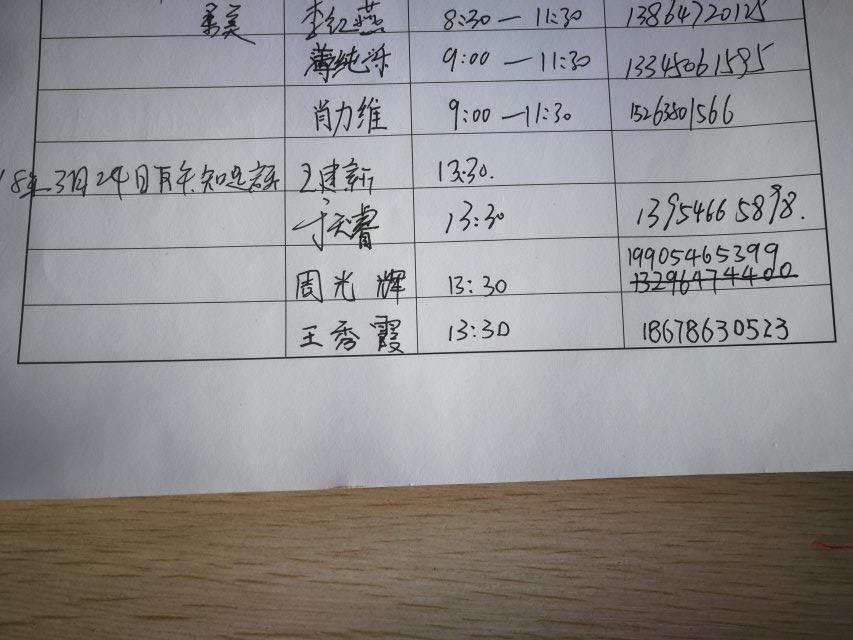 李红燕 8:30—11:30 13864720125
薄纯泺 9:00—11:30 13345061595
肖力维 9:00—11:30 15263801566
18年3月24日 王建新 13:30.
于天睿 13:30 13954665898.
19905465399
周光辉 13:30 13296474400
王秀霞 13:30 18678630523